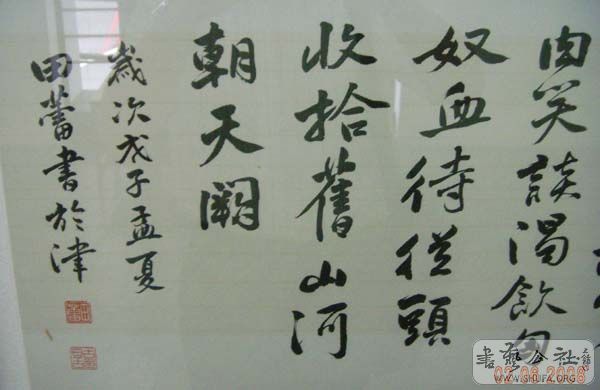 肉笑談渴飲匈
奴血待從頭
收拾舊山河
朝天闕
歲次戊子孟夏
田蕾書於津
書藝公社
WWW.SHUFA.ORG